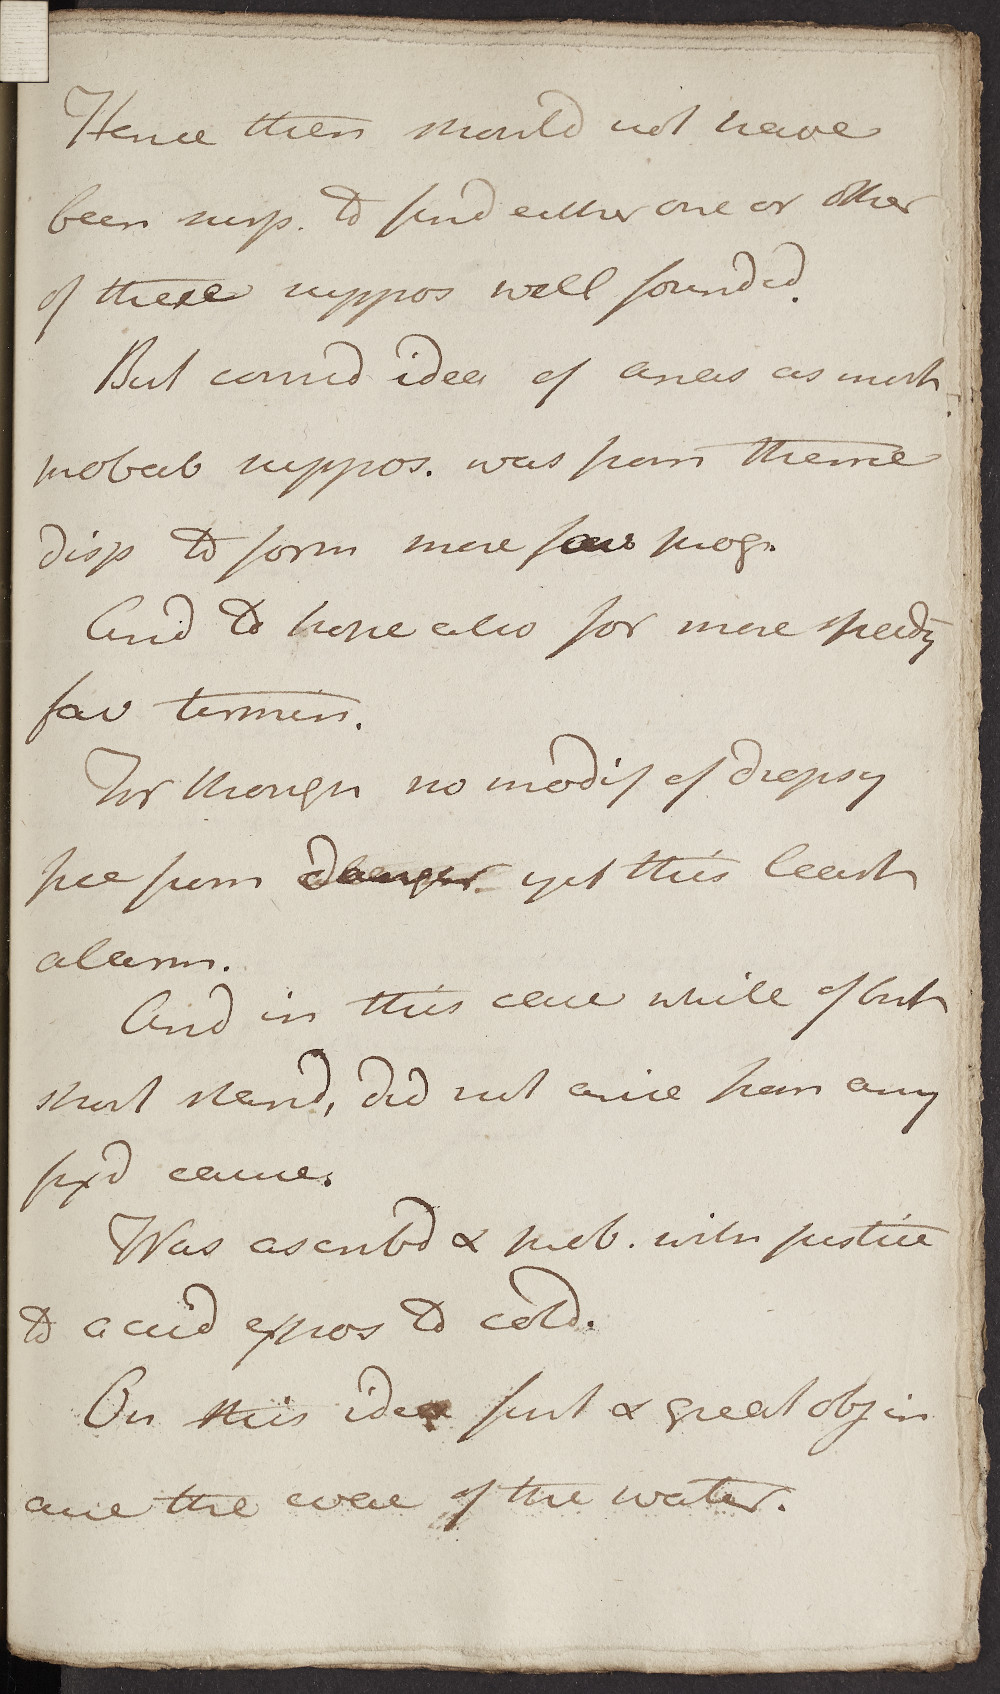 Hence then should not have
been surp. to find either one or other
of these suppos well founded.
But consid idea of anas as most
probab suppos. was from thence
disp to form more fav prog.
And to hope also for more speedy
fav termin.
For though no modif of dropsy
free from danger yet this least
alarm.
And in this case while of but
short stand, did not arise from any
fix'd cause.
Was ascrib'd & prob. with justice
to accid expos to cold.
On this idea first & great obj in
cure the evac of the water.